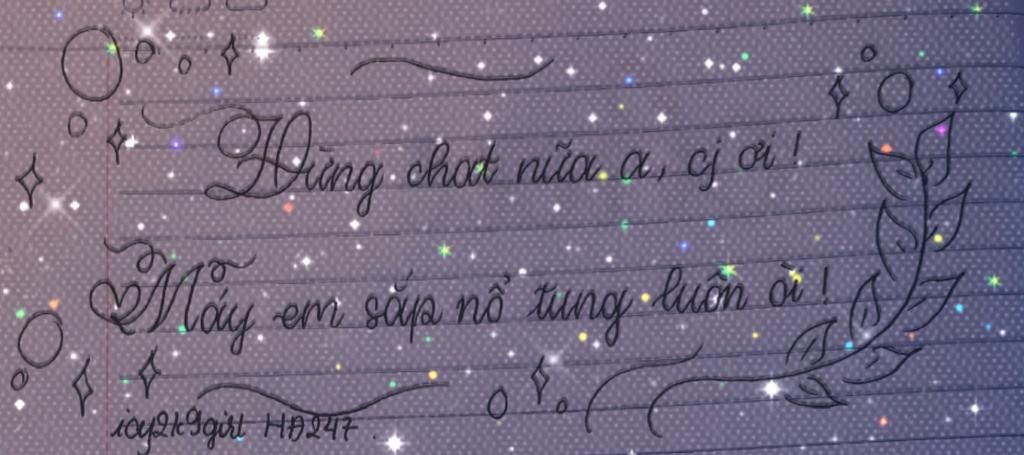 Đừng chat nữa a, cj ơi!
Máy em sắp nổ tung luôn òi!
icy2k9girl HĐ247.